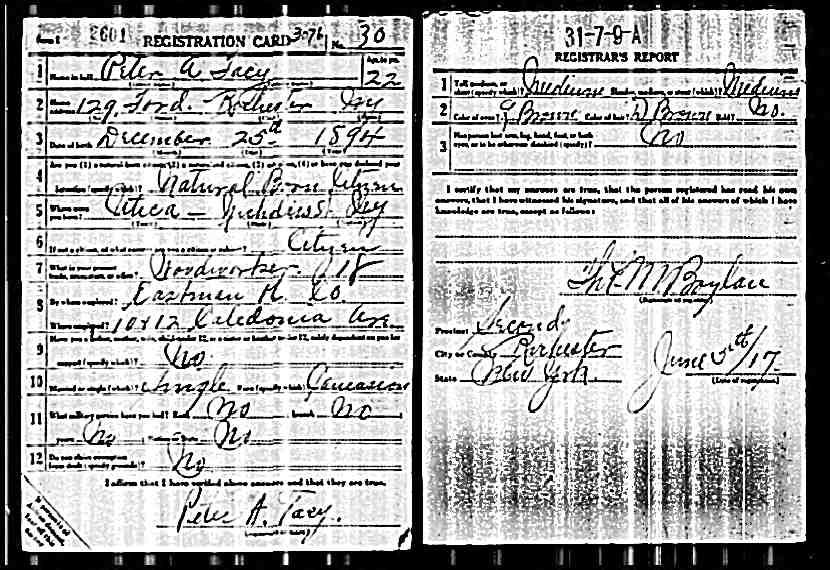 Form 1 2601 REGISTRATION CARD 3076 No. 30
1 Name in full Peter A Tacy Age, in yrs. 22
2 Home address 129 Ford. Rochester Ny
3 Date of birth December 25th 1894
4 Are you (1) a natural born citizen, (2) a naturalized citizen, (3) an alien, (4) or have you declared your
intention (specify which)? Natural Born Citizen
5 Where were you born? Utica Ny
6 If not a citizen, of what country are you a citizen or subject? Citizen
7 What is your present trade, occupation, or office? Woodworker 18
8 By whom employed? Eastman K. Co.
Where employed? Caledonia Ave
9 Have you a father, mother, wife, child under 12, or a sister or brother under 12, solely dependent on you for
support (specify which)? No
10 Married or single (which)? Single Race (specify which)? Caucasion
11 What military service have you had? Rank No branch No
years No Nation or State No
12 Do you claim exemption from draft (specify grounds)? No
I affirm that I have verified above answers and that they are true.
Peter A. Tacy.
31-7-9-A
REGISTRAR'S REPORT
1 Tall, medium, or short (specify which)? Medium Slender, medium, or stout (which)? Medium
2 Color of eyes? G Brown Color of hair? D Brown Bald? No.
3 Has person lost arm, leg, hand, foot, or both
eyes, or is he otherwise disabled (specify)? No
I certify that my answers are true, that the person registered has read his own
answers, that I have witnessed his signature, and that all of his answers of which I have
knowledge are true, except as follows:
M Boylan
(Signature of registrar)
Precinct Second
City or County Rochester
State New York.
June 5th/17
(Date of registration)